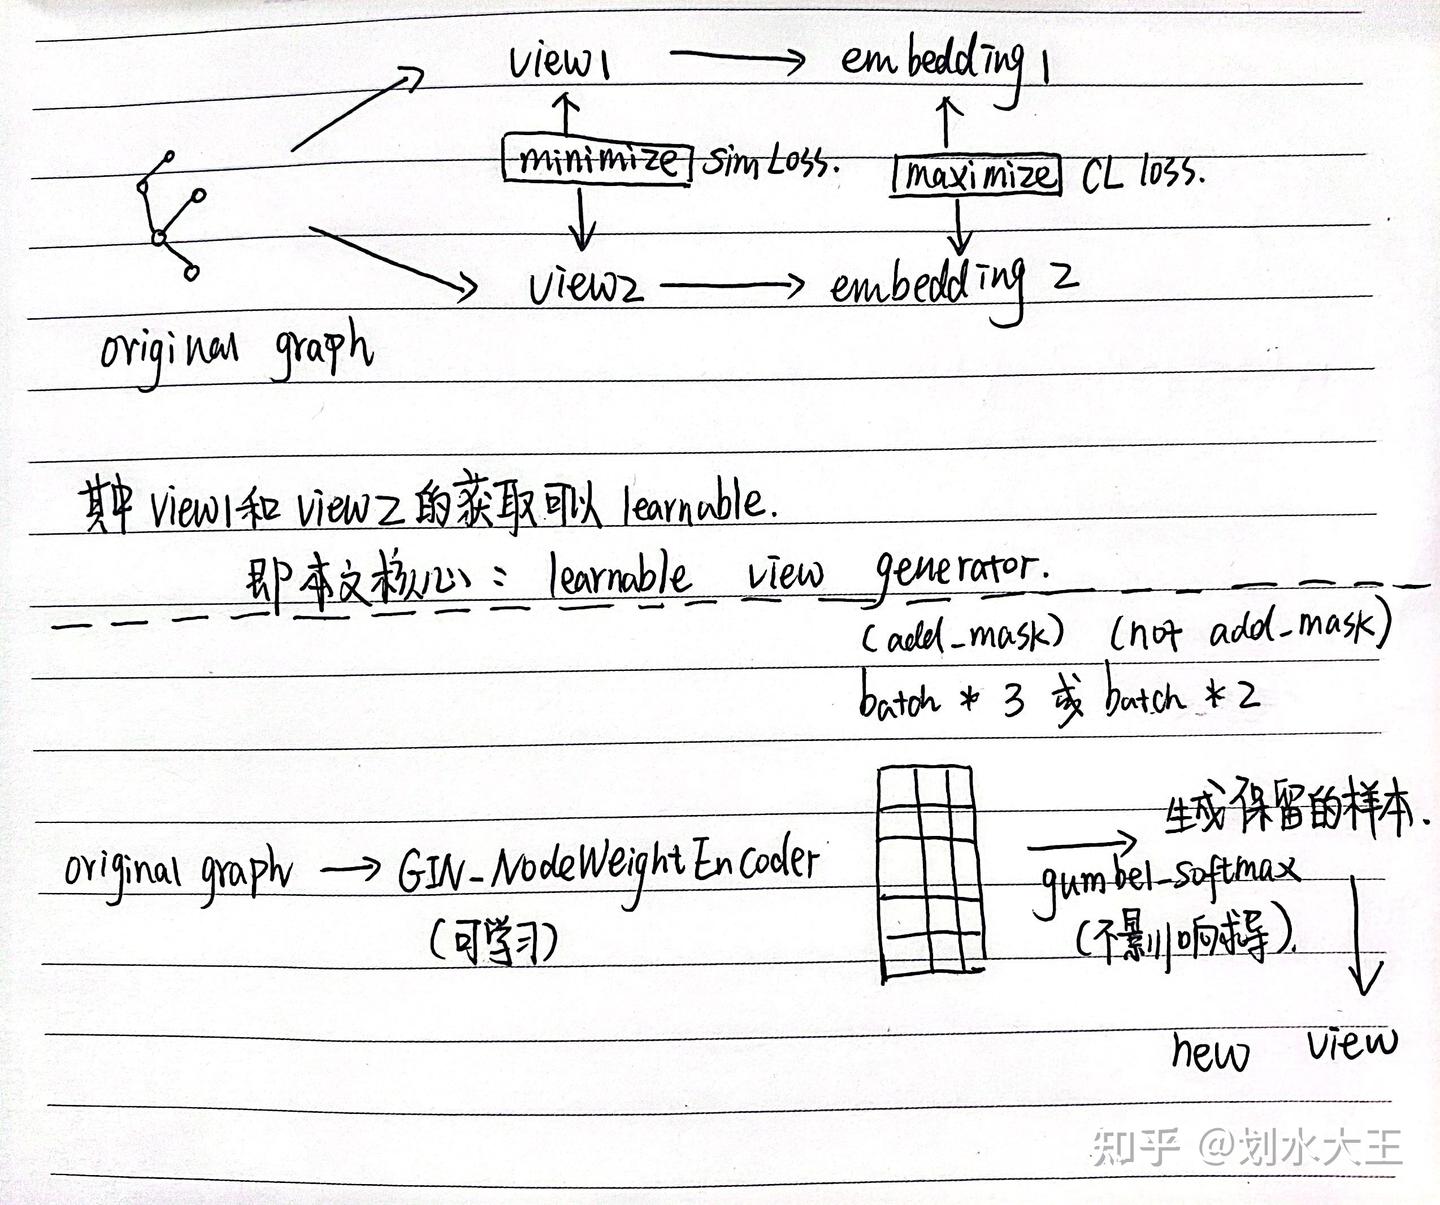 view1 → embedding1
minimize sim Loss. maximize CL loss.
view2 → embedding 2
original graph
其中 view1和 view2的获取可以 learnable.
即本文核心: learnable view generator.
(add_mask) (not add_mask)
batch * 3 或 batch * 2
生成保留的样本.
original graph → GIN_NodeWeightEncoder
gumbel-softmax
(可学习)
(不影响求导).
new view
知乎 @划水大王